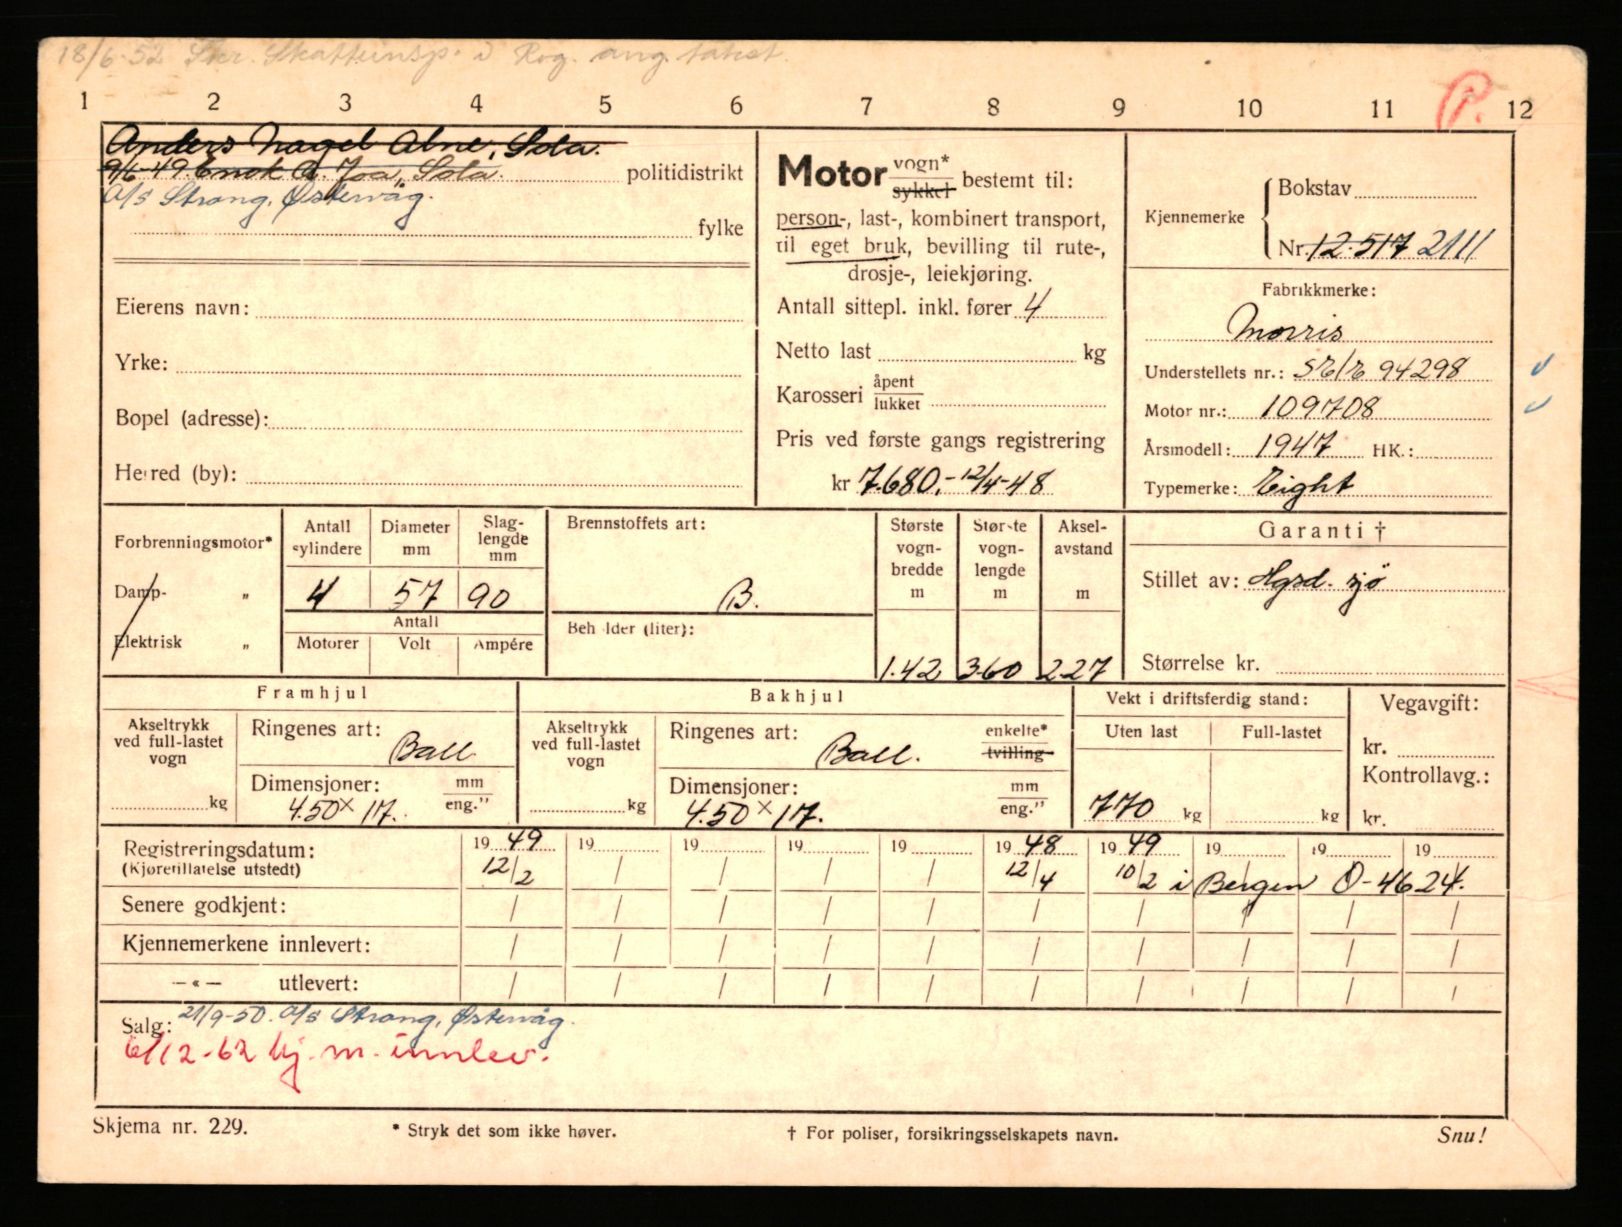 18/6-52 Skr. Skatteinsp. i Rog. ang. takst
1 2 3 4 5 6 7 8 9 10 11 12
P.
Anders Nagel Alne, Sola.
9/6-49. Enok A. Joa, Sola. politidistrikt
A/S Strong, Østervåg.
fylke
Eierens navn:
Yrke:
Bopel (adresse):
Herred (by):
Motor vogn* sykkel bestemt til:
person-, last-, kombinert transport,
til eget bruk, bevilling til rute-,
drosje-, leiekjøring.
Antall sittepl. inkl. fører 4
Netto last kg
Karosseri åpent lukket
Pris ved første gangs registrering
kr 7.680.- 12/4-48
Kjennemerke
Bokstav
Nr. 12.517 2111
Fabrikkmerke:
Morris
Understellets nr.: 94298
Motor nr.: 109708
Årsmodell: 1947 HK.:
Typemerke: Eight
Forbrenningsmotor*
Damp- „
Elektrisk „
Antall sylindere
Diameter mm
Slag-lengde mm
4 57 90
Antall
Motorer Volt Ampére
Brennstoffets art:
B.
Beholder (liter):
Største vogn-bredde m
Største vogn-lengde m
Aksel-avstand m
1.42 360 227
Garanti †
Stillet av: Hgsd. sjö
Størrelse kr.
Framhjul
Akseltrykk ved full-lastet vogn
kg
Ringenes art:
Ball
Dimensjoner: mm eng."
4.50 x 17.
Bakhjul
Akseltrykk ved full-lastet vogn
kg
Ringenes art: enkelte* tvilling-
Ball.
Dimensjoner: mm eng."
4.50 x 17.
Vekt i driftsferdig stand:
Uten last Full-lastet
770 kg kg
Vegavgift:
kr.
Kontrollavg.:
kr.
Registreringsdatum: 19 49 19 19 19 19 19 48 19 49 19 19 19
(Kjøretillatelse utstedt) 12/2 / / / / 12/4 10/2 i Bergen O-4624.
Senere godkjent: / / / / / / / / / /
Kjennemerkene innlevert: / / / / / / / / / /
— « — utlevert: / / / / / / / / / /
Salg: 21/9-50. A/S Strong, Østervåg.
6/12-62 kj. m. innlev.
Skjema nr. 229.
* Stryk det som ikke høver.
† For poliser, forsikringsselskapets navn.
Snu!